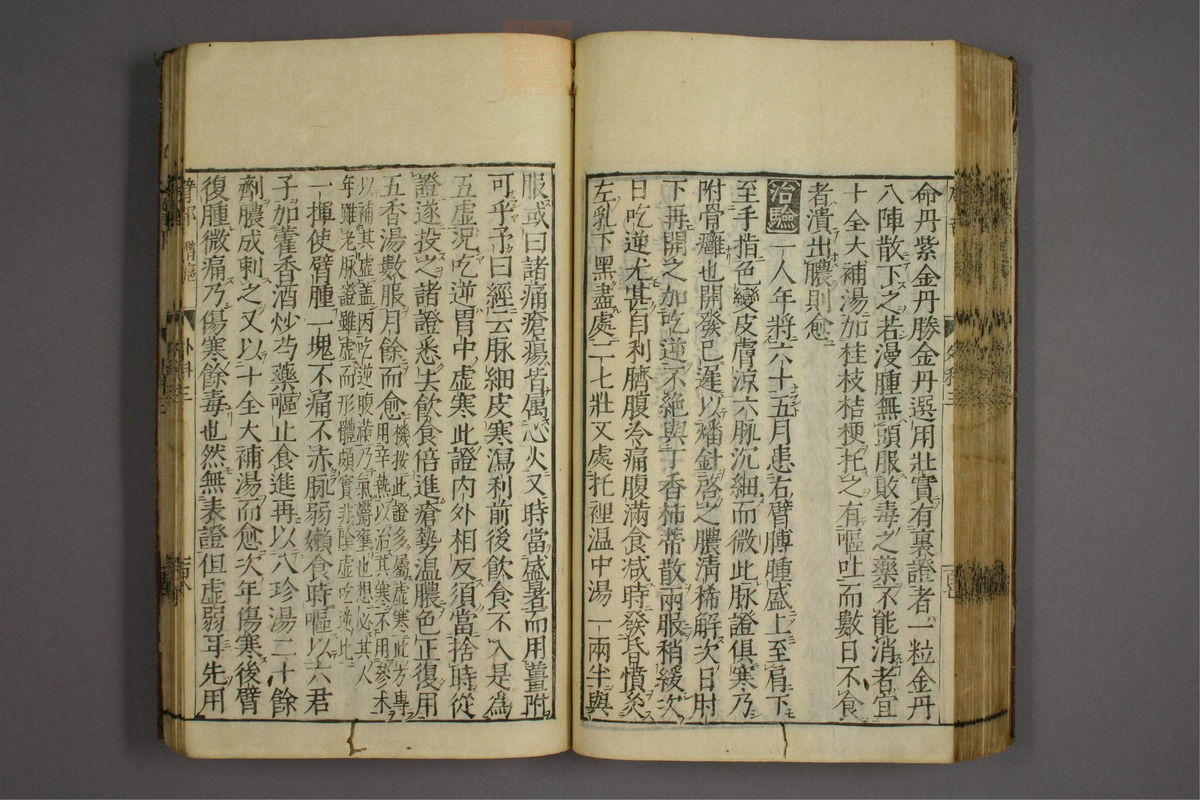 命丹紫金丹勝金丹選用壯實有裏證者一粒金丹
八陣散下之若漫腫無頭服敗毒之藥不能消者宜
十全大補湯加桂枝桔梗托之有嘔吐而數日不食
者潰出膿則愈
治驗一人年將六十五月患右臂膊腫盛上至肩下
至手指色變皮膚涼六脉沉細而微此脉證俱寒乃
附骨癰也開發已遲以燔針啓之膿清稀解次日肘
下再開之加吃逆不絕與丁香柿蒂散兩服稍緩次
日吃逆尤甚自利臍腹冷痛腹滿食减時發昏憒灸
左乳下黑盡處二七壯又處托裡溫中湯一兩半與
服或曰諸痛瘡瘍皆屬心火又時當盛暑而用薑附
可乎予曰經云脉細皮寒瀉利前後飲食不入是為
五虚况吃逆胃中虚寒此證内外相反須當捨時從
證遂投之諸證悉去飲食倍進瘡勢温膿色正復用
五香湯數服月餘而愈機按此證多屬虚寒此方專
用辛熱以治其寒不用參朮
以補其虚盖因吃逆腹滿乃氣欝壅也想必其人
年雖老脉證雖虚而形體頗實非陰虚吃逆比
一揮使臂腫一塊不痛不赤脉弱嬾食時嘔以六君
子加藿香酒炒芍藥嘔止食進再以八珍湯二十餘
劑膿成刺之又以十全大補湯而愈次年傷寒後臂
復腫微痛乃傷寒餘毒也然無表證但虚弱耳先用
臂部